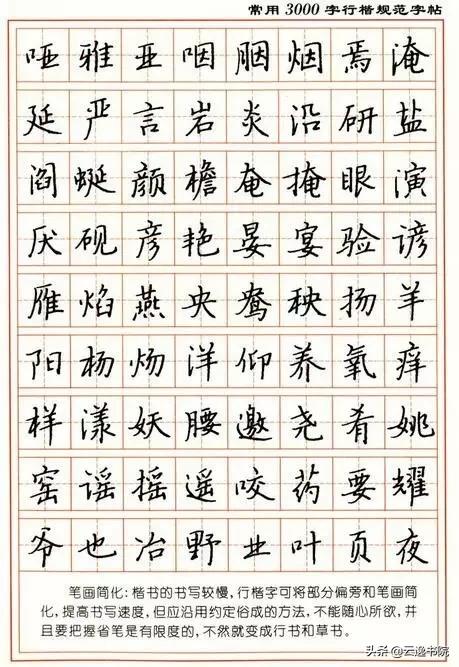 常用3000字行楷规范字帖
哑雅亚咽胭烟焉淹
延严言岩炎沿研盐
阎蜒颜檐奄掩眼演
厌砚彦艳晏宴验谚
雁焰燕央鸯秧扬羊
阳杨炀洋仰养氧痒
样漾妖腰邀尧肴姚
窑谣摇遥咬药要耀
爷也冶野业叶页夜
笔画简化:楷书的书写较慢,行楷字可将部分偏旁和笔画简
化,提高书写速度,但应沿用约定俗成的方法,不能随心所欲,并
且要把握省笔是有限度的,不然就变成行书和草书。
头条@云逸书院